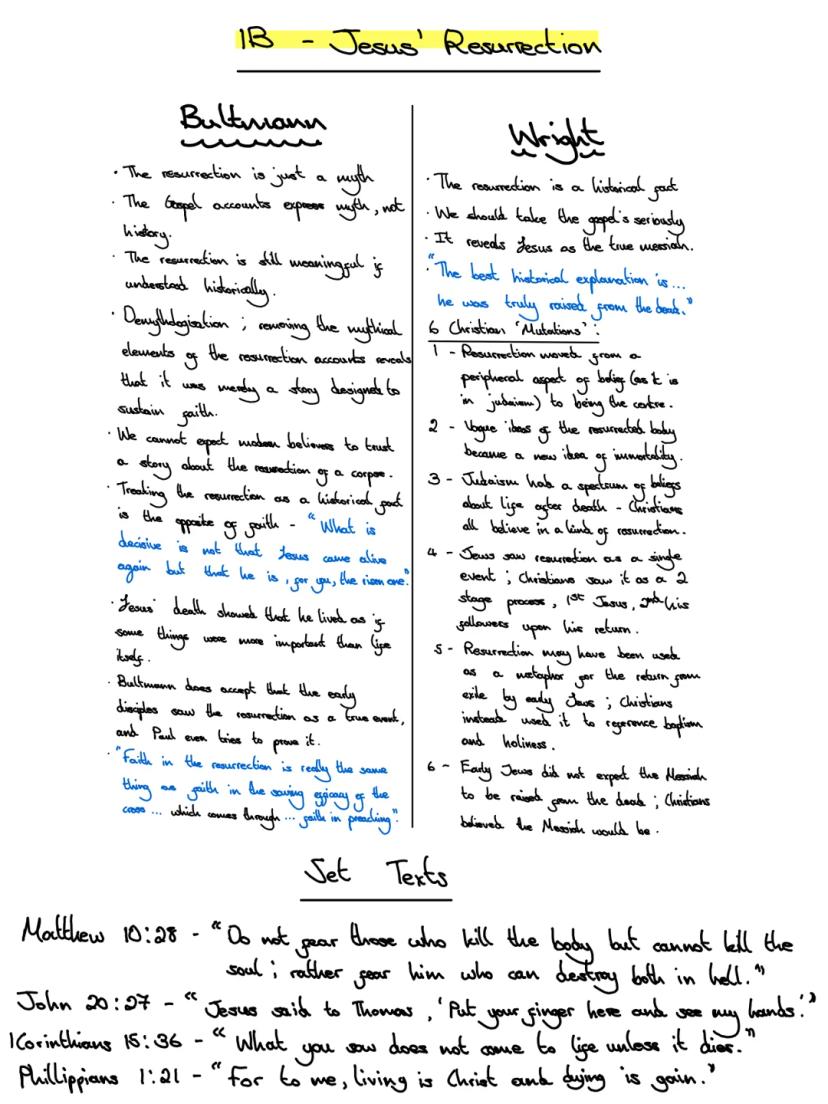 1B - Jesus' Resurrection
Bultmann
· The resurrection is just a myth
· The Gospel accounts express myth, not
history.
· The resurrection is still meaningful if
understood historically.
· Demythologisation ; removing the mythical
elements of the resurrection accounts reveals
that it was merely a story designed to
sustain faith.
· We cannot expect modern believers to trust
a story about the resurrection of a corpse.
· Treating the resurrection as a historical fact
is the opposite of faith - "What is
decisive is not that Jesus came alive
again but that he is, for you, the risen one."
· Jesus' death showed that he lived as if
some things were more important than life
itself.
· Bultmann does accept that the early
disciples saw the resurrection as a true event,
and Paul even tries to prove it.
· "Faith in the resurrection is really the same
thing as faith in the saving efficacy of the
cross ... which comes through ... faith in preaching".
Wright
· The resurrection is a historical fact
· We should take the gospel's seriously
· It reveals Jesus as the true messiah.
· "The best historical explanation is...
he was truly raised from the dead."
6 Christian 'Mutations' :
1 - Resurrection moved from a
peripheral aspect of belief (as it is
in judaism) to being the centre.
2 - Vague ideas of the resurrected body
became a new idea of immortality.
3 - Judaism had a spectrum of beliefs
about life after death - Christians
all believe in a kind of resurrection.
4 - Jews saw resurrection as a single
event ; Christians saw it as a 2
stage process, 1st Jesus, 2nd his
followers upon his return.
5 - Resurrection may have been used
as a metaphor for the return from
exile by early Jews ; Christians
instead used it to reference baptism
and holiness.
6 - Early Jews did not expect the Messiah
to be raised from the dead ; Christians
believed the Messiah would be.
Set Texts
Matthew 10:28 - "Do not fear those who kill the body but cannot kill the
soul ; rather fear him who can destroy both in hell."
John 20:27 - "Jesus said to Thomas, 'Put your finger here and see my hands.'"
1 Corinthians 15:36 - "What you sow does not come to life unless it dies."
Phillippians 1:21 - "For to me, living is Christ and dying is gain."